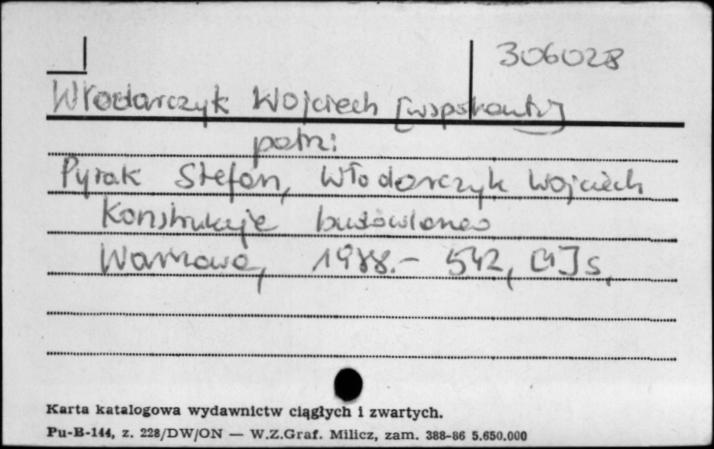 306028
Włodarczyk Wojciech [współaut.]
patrz:
Pyrak Stefan, Włodarczyk Wojciech
Konstrukcje budowlane
Warszawa, 1988.- 542, [4] s.
Karta katalogowa wydawnictw ciągłych i zwartych.
Pu-B-144, z. 228/DW/ON — W.Z.Graf. Milicz, zam. 388-86 5.650.000